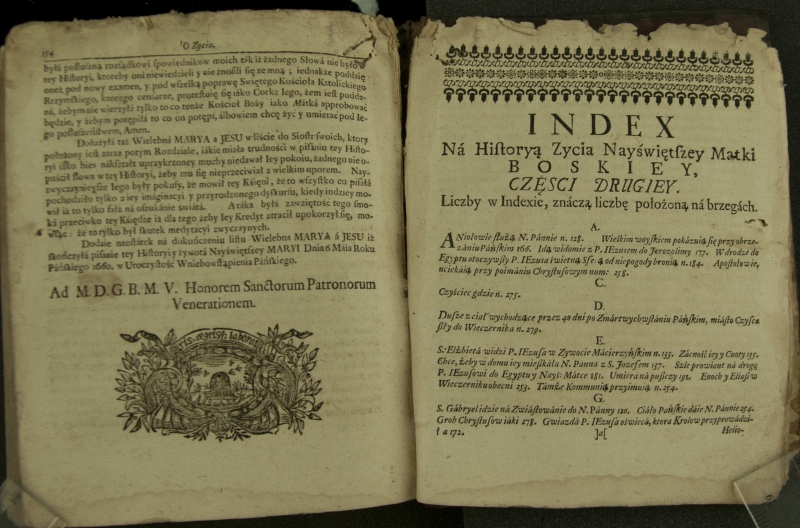 194
O Zyciu.
była posłuszna rozsądkowi spowiednikow moich ták iż żadnego Słowá nie było w
tey Historyi, ktoreby oni niewiedzieli y nie znośili się ze mną; iednakże poddáię
onęż pod nowy examen, y pod wszelką poprawę Swiętego Kościołá Katolickiego
Rzymskiego, ktorego cenzurze, protestuię się iáko Corká Iego, żem iest poddá-
ná, żebym nie wierzyłá tylko to co tenże Kościoł Boży iáko Mátká approbowáć
będzie, y żebym potępiłá to co on potępi, álbowiem chcę żyć y umieráć pod Ie-
go posłuszeństwem, Amen.
Dołożyłá táż Wielebna MARYA a JESU w liście do Siostr swoich, ktory
położony iest záraz po tym Rozdziale, iákie miáłá trudności w písániu tey Histo-
ryi iáko bies nikszáłt uprzykrzoney muchy niedawał Iey pokoiu, żadnego nie o-
puścił słowa w tey Historyi, żeby mu się nieprzeciwiał z wielkim uporem. Nay-
zwyczaynieysze Iego były pokusy, że mowił tey Księni, że to wszystko co pisáłá
pochodziło tylko z iey imaginacyi y przyrodzonego dyskursu, kiedy indziey mo-
wił iż to tylko fałsz ná oszukánie świátá. A táka byłá záwziętość tego smo-
ká przeciwko tey Księdze iż dla tego żeby Iey Kredyt ztracił upokorzył się, mo-
wiąc: że to tylko był skutek medytacyi zwyczaynych.
Dodáie náostátek ná dokończeniu listu Wielebna MARYA á JESU iż
skończyłá pisánie tey Historyi y żywotá Nayświętszey MARYI Dniá 6 Máia Roku
Páńskiego 1660. w Uroczystość Wniebowstąpienia Páńskiego.
Ad M. D. G. B. M. V. Honorem Sanctorum Patronorum
Venerationem.
INDEX
Ná Historyą Zycia Nayświętszey Matki
BOSKIEY,
CZĘSCI DRUGIEY.
Liczby w Indexie, znáczą liczbę położoną ná brzegách.
A.
ANiołowie służą N. Pánnie n. 128. Wielkim woyskiem pokázuią się przy obrze-
zániu Páńskim 166. Idą widomie z P. IEzusem do Jerozolimy 177. W drodze do
Egyptu otoczywszy P. IEzusa świetną Sferą od niepogody bronią n. 184. Apostołowie,
uciekáią przy poimániu Chrystusowym num: 258.
C.
Czyściec gdzie n. 275.
D.
Dusze z ciał wychodzące przez 40 dni po Zmártwychwstániu Páńskim, miásto Czysca
szły do Wieczernika n. 279.
E.
S. Elżbietá widzi P. IEzusa w Zywocie Mácierzyńskim n. 133. Zácność iey y Cnoty 135.
Chce, żeby w domu iey mieszkáłá N. Panna z S. Jozefem 137. Szle prowiant ná drogę
P. IEzusowi do Egyptu y Nayś: Mátce 181. Umiera ná puszczy 191. Enoch y Eliasz w
Wieczerniku obecni 253. Támże Kommunią przyimuią n. 254.
G.
S. Gábryel idzie ná Zwiástowánie do N. Pánny 120. Ciáło Páńskie dáie N. Pánnie 254.
Grob Chrystusow iáki 278. Gwiazdá P. IEzusa oświeca, ktora Krolow przyprowádzi-
łá 172.
]a[
Helio-